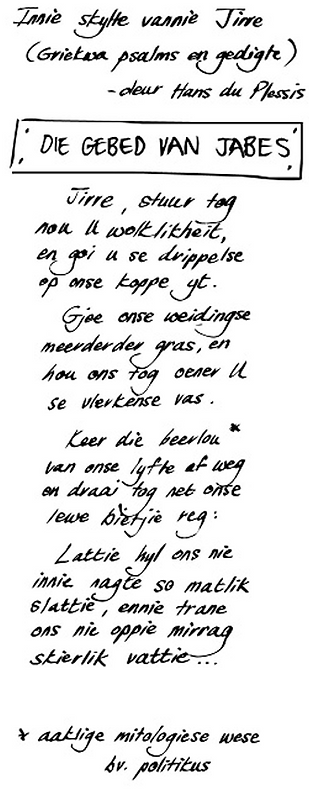 Innie skylte vannie Jirre
(Griekwa psalms en gedigte)
- deur Hans du Plessis
DIE GEBED VAN JABES
Jirre, stuur tog
nou U wolklikheit,
en goi U se drippelse
op onse koppe yt.
Gjee onse weidingse
meerderder gras, en
hou ons tog oener U
se vlerkense vas.
Keer die beerlou*
van onse lyfte af weg
en draai tog net onse
lewe bietjie reg:
Lattie hyl ons nie
innie nagte so matlik
slattie, ennie trane
ons nie oppie mirrag
skierlik vattie...
* aaklige mitologiese wese
bv. politikus